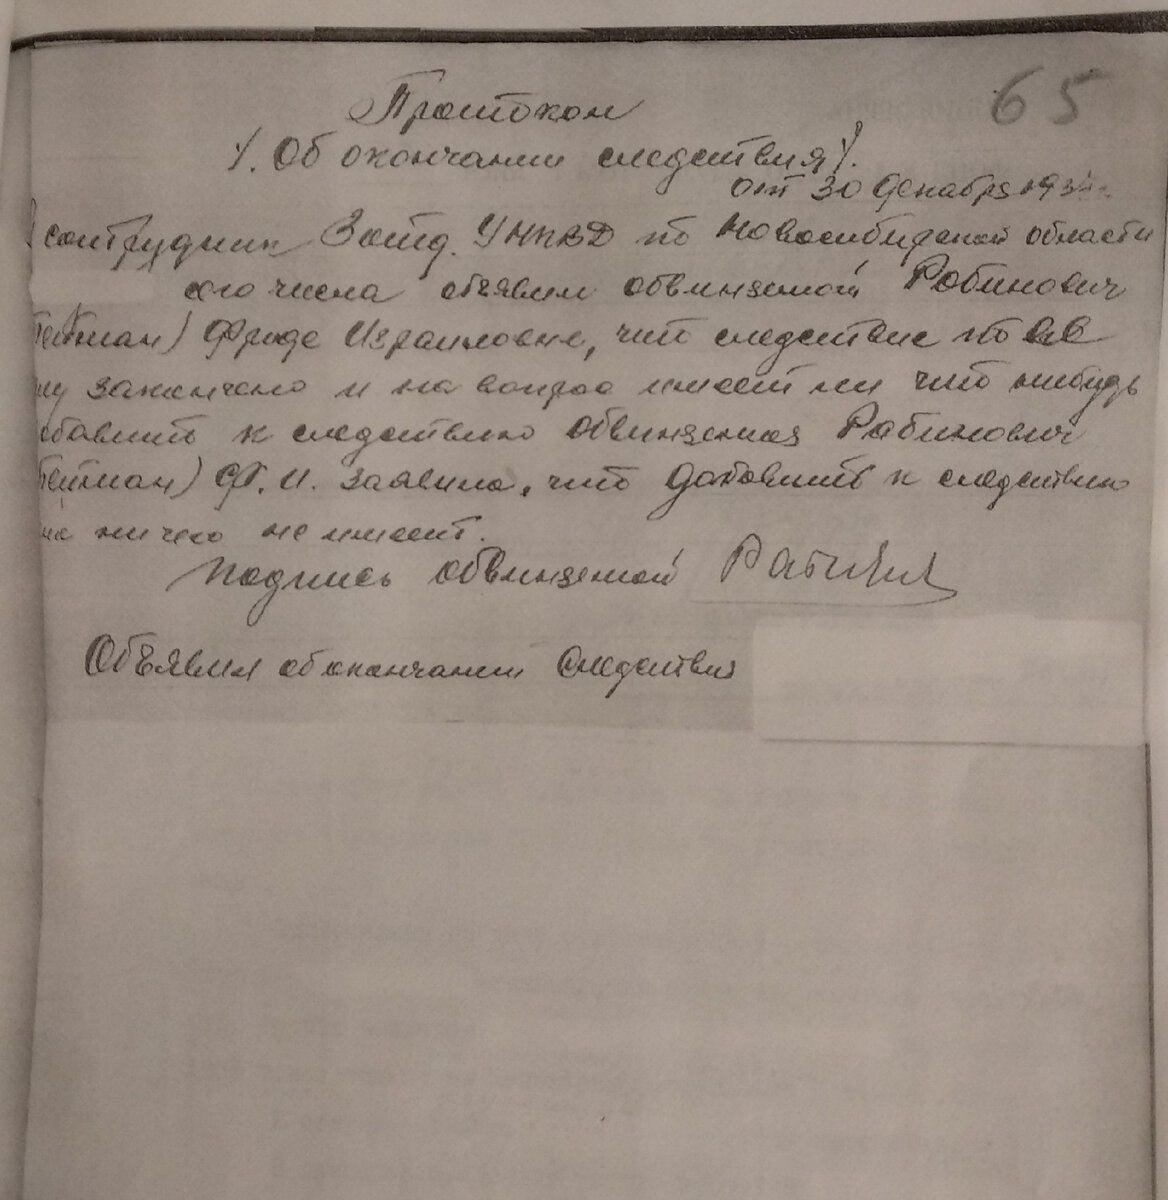 65
Протокол
/. Об окончании следствия /.
от 30 декабря 193
сотрудник 3 отд. УНКВД по Новосибирской области
сего числа объявил обвиняемой Рабинович
Фриде Израиловне, что следствие по ее
закончено и на вопрос имеет ли что нибудь
к следствию обвиняемая Рабинович
Ф. И. заявила, что добавить к следствию
ничего не имеет.
Подпись обвиняемой Рабинович
Объявил об окончании следствия